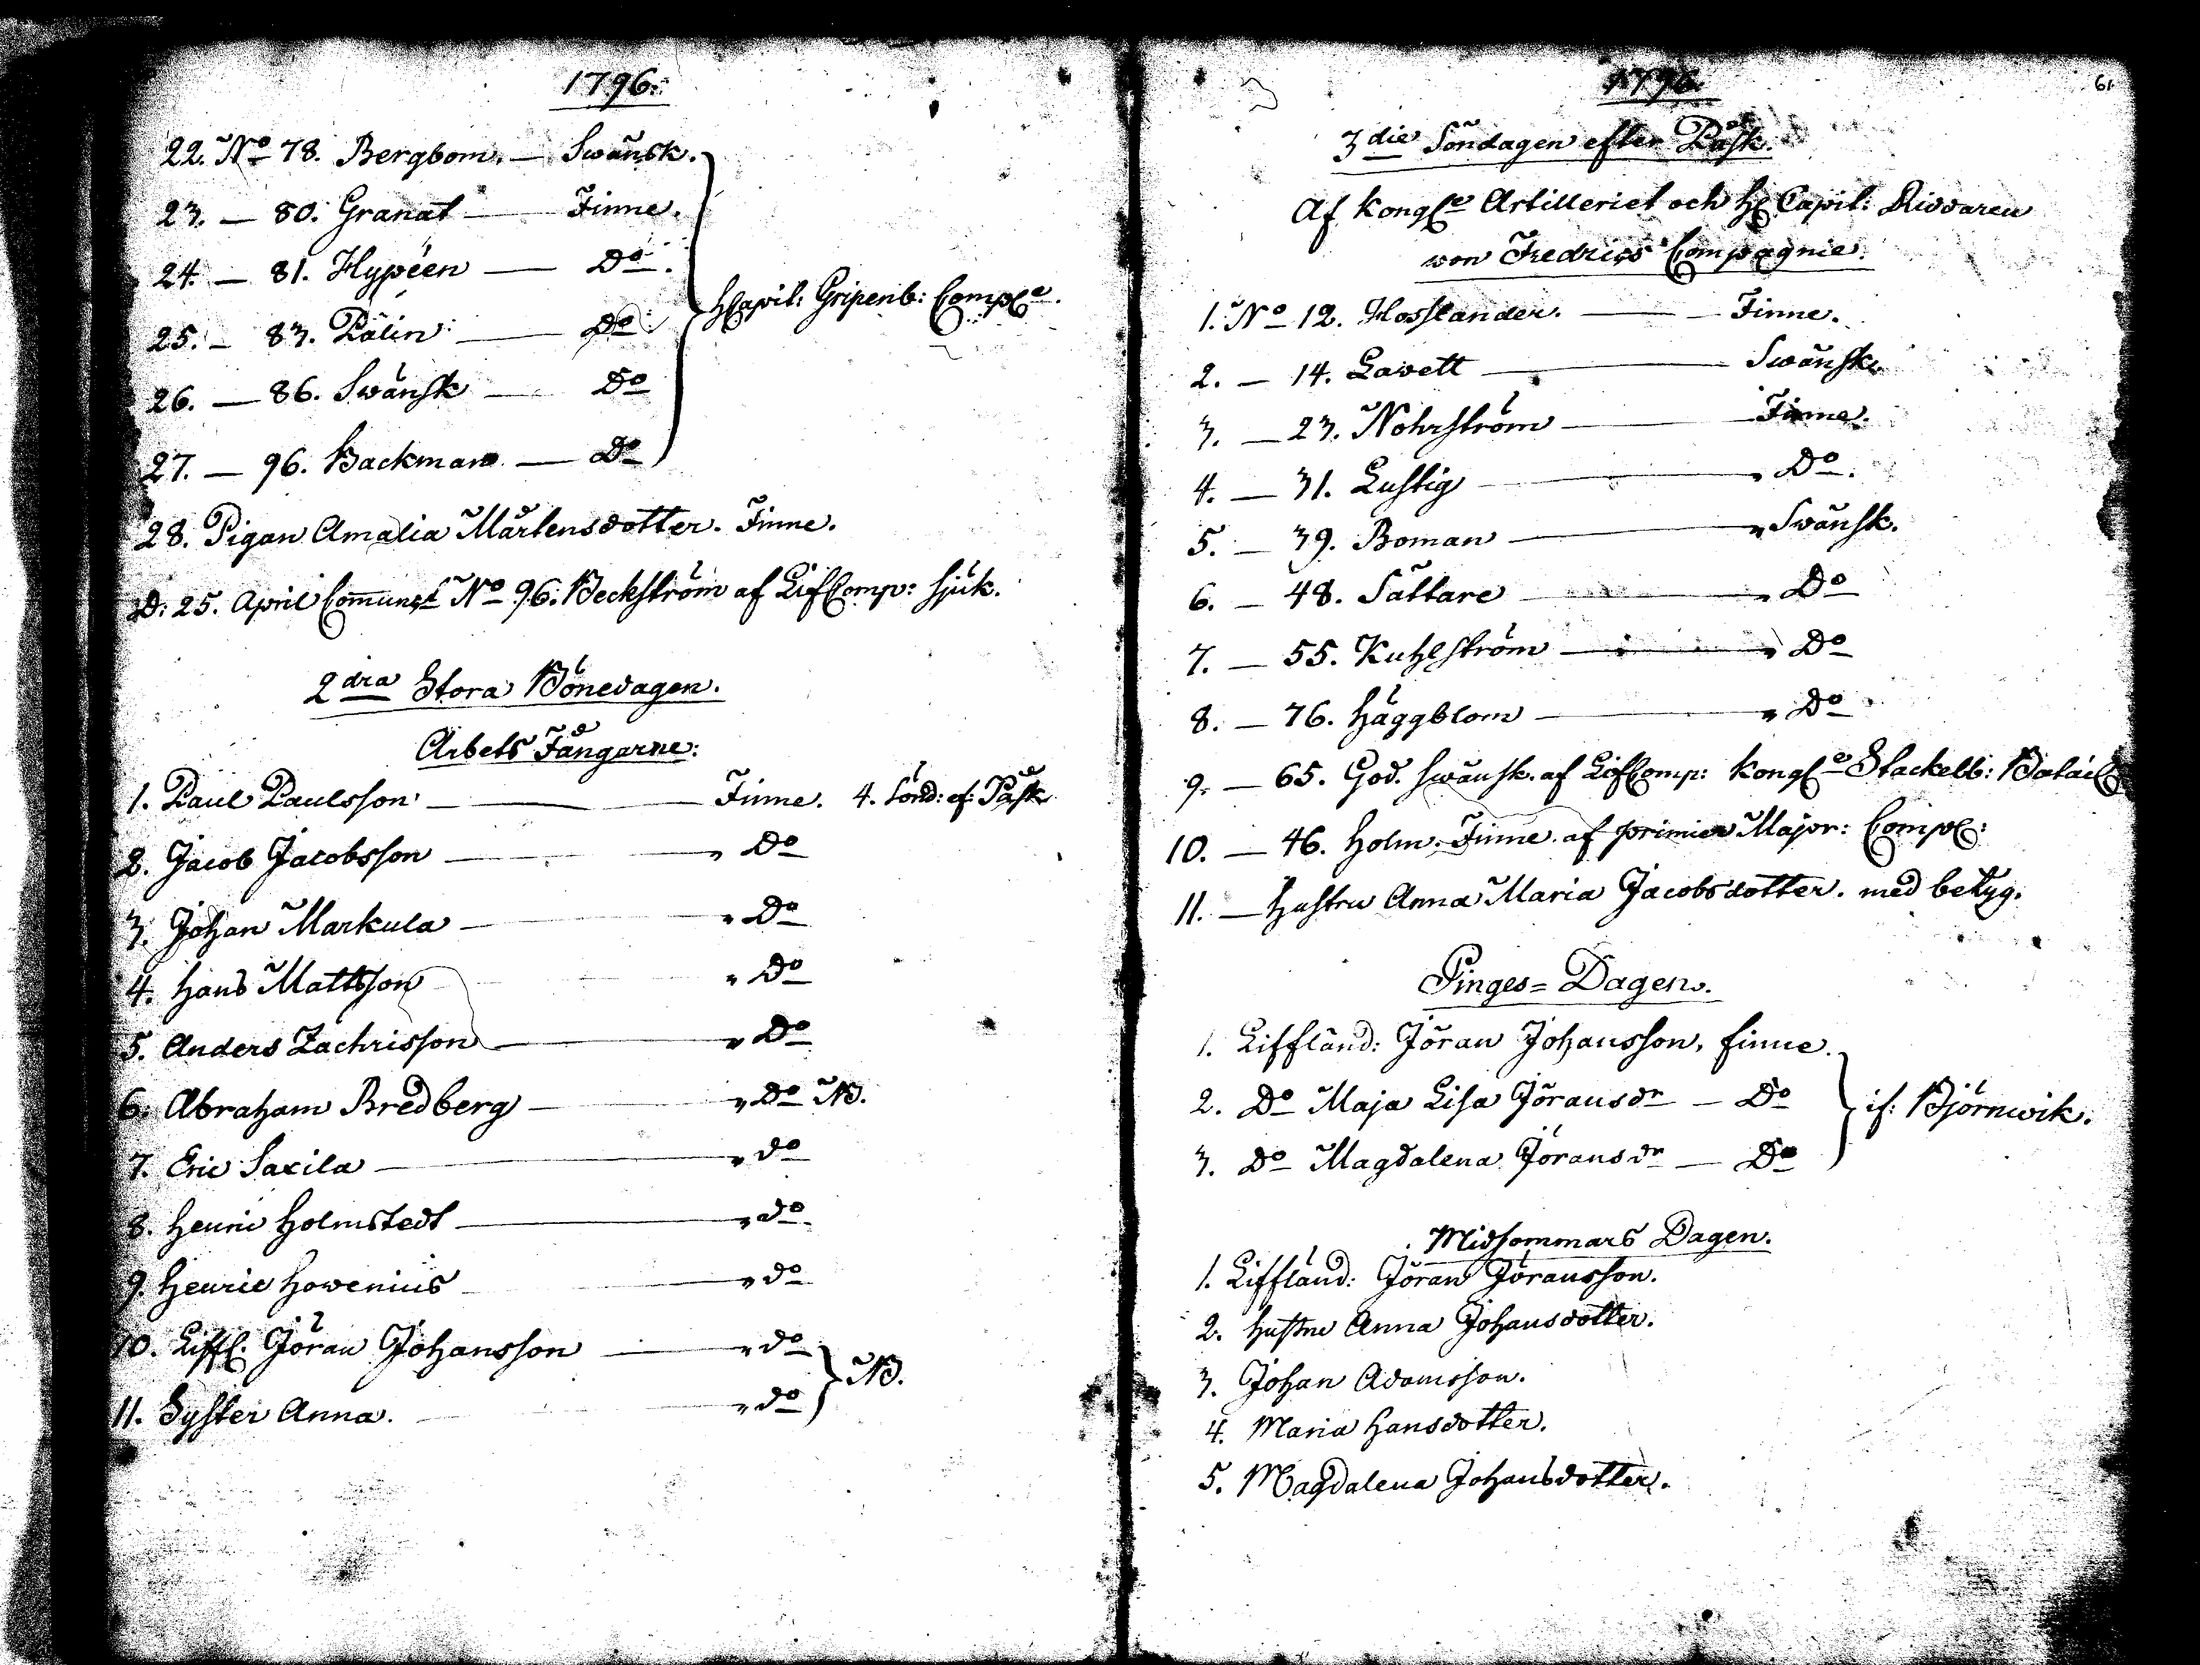 1796.
22. No 78. Bergbom. — Swänsk.
23. — 80. Granat — Finne.
24. — 81. Hypéen — Do.
HCapit: Gripenb: Compe.
25. — 83. Pålin — Do
26. — 86. Swänsk — Do
27. — 96. Backman — Do
28. Pigan Amalia Mårtensdotter. Finne.
D: 25. April No 96. Beckström af LifComp: sjuk.
2dra Stora Bönedagen.
Arbets Fångarne:
1. Paul Paulsson — Finne. 4. Sönd: ef: Påsk
2. Jacob Jacobsson — " Do
3. Johan Markula — " Do
4. Hans Mattsson — " Do
5. Anders Zachrisson — " Do
6. Abraham Bredberg — " Do NB.
7. Eric Saxila — " do
8. Henric Holmstedt — " do
9. Henric Howenius — " do
10. Liffl. Jöran Johansson — " do
NB.
11. Syster Anna. — " do
1796.
61.
3die Söndagen efter Påsk.
Af Kongle Artilleriet och H Capit: Riddaren
von Fredrics Compagnie.
1. No 12. Hossländer. — Finne.
2. — 14. Lavett — Swänsk.
3. — 23. Nohrström — Finne.
4. — 31. Lustig — " Do.
5. — 39. Boman — " Swänsk.
6. — 48. Sättare — " Do
7. — 55. Kuhlström — " Do
8. — 76. Häggblom — " Do
9. — 65. God. swänsk. af LifComp: Kongle Stackelb: Batail
10. — 46. Holm. Finne. af primier Major: Comp:
11. — Hustru Anna Maria Jacobsdotter. med betyg.
Pinges=Dagen.
1. Liffländ: Jöran Johansson, finne.
2. Do Maja Lisa Jöransdr — Do
if: Björnwik.
3. Do Magdalena Jöransdr — Do
Midsommars Dagen.
1. Liffländ: Jöran Jöransson.
2. hustru Anna Johansdotter.
3. Johan Adamsson.
4. Maria Hansdotter.
5. Magdalena Johansdotter.